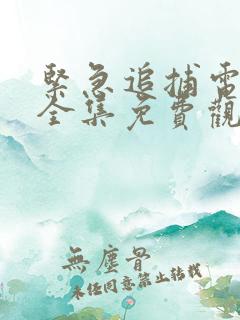 緊急追捕電
全集免費觀
無塵骨
未經同意禁止轉載